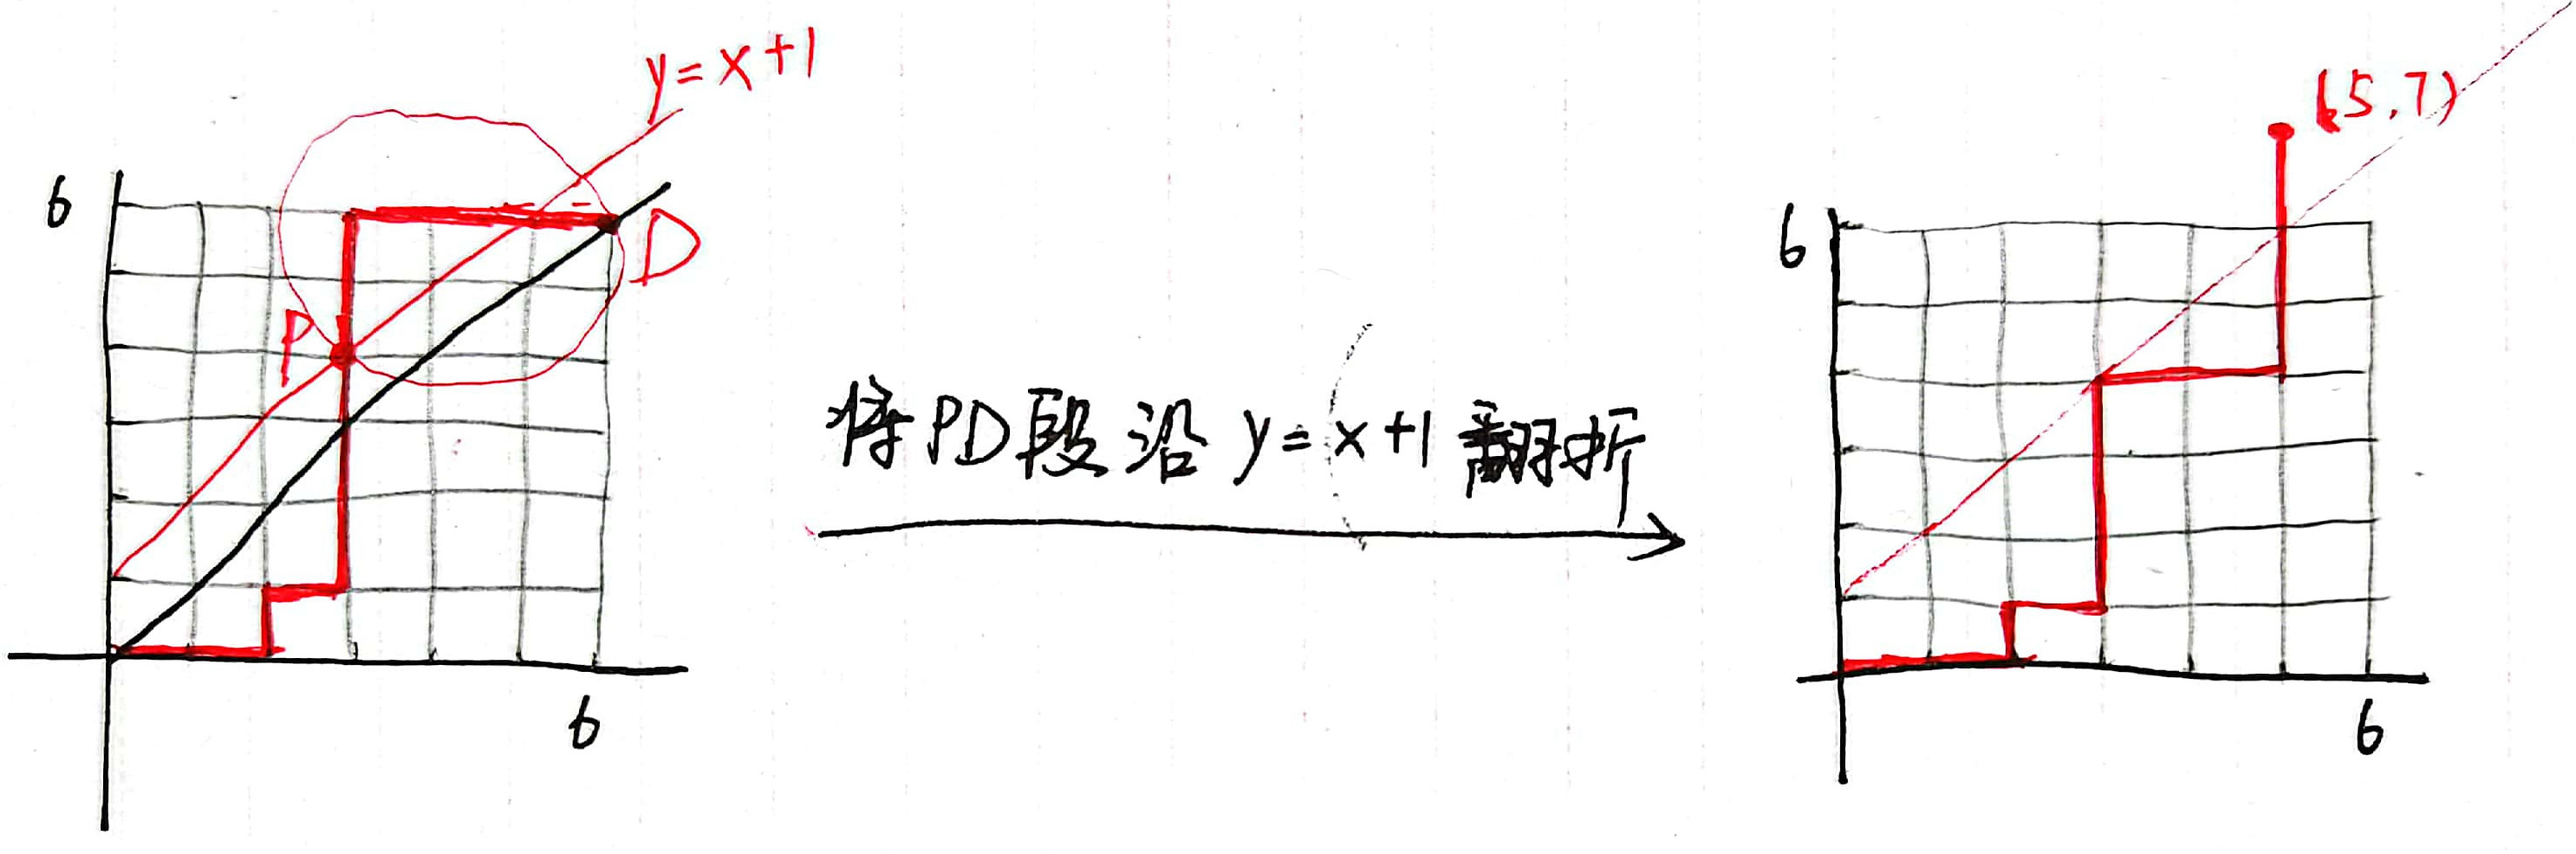 y=x+1
6
D
P
6
将PD段沿y=x+1翻折
(5,7)
6
6